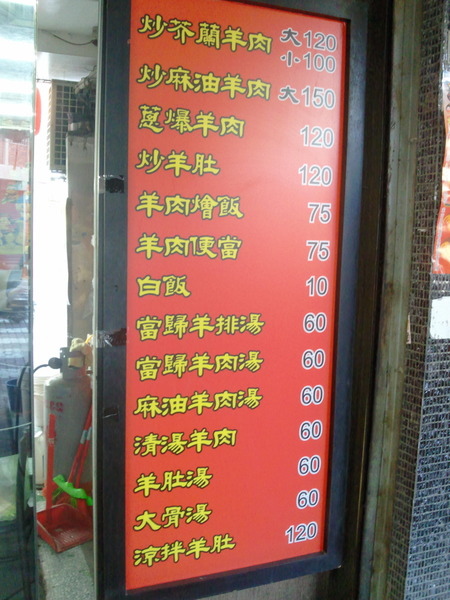 炒芥蘭羊肉 大120
小100
炒麻油羊肉 大150
蔥爆羊肉 120
炒羊肚 120
羊肉燴飯 75
羊肉便當 75
白飯 10
當歸羊排湯 60
當歸羊肉湯 60
麻油羊肉湯 60
清湯羊肉 60
羊肚湯 60
大骨湯 60
涼拌羊肚 120